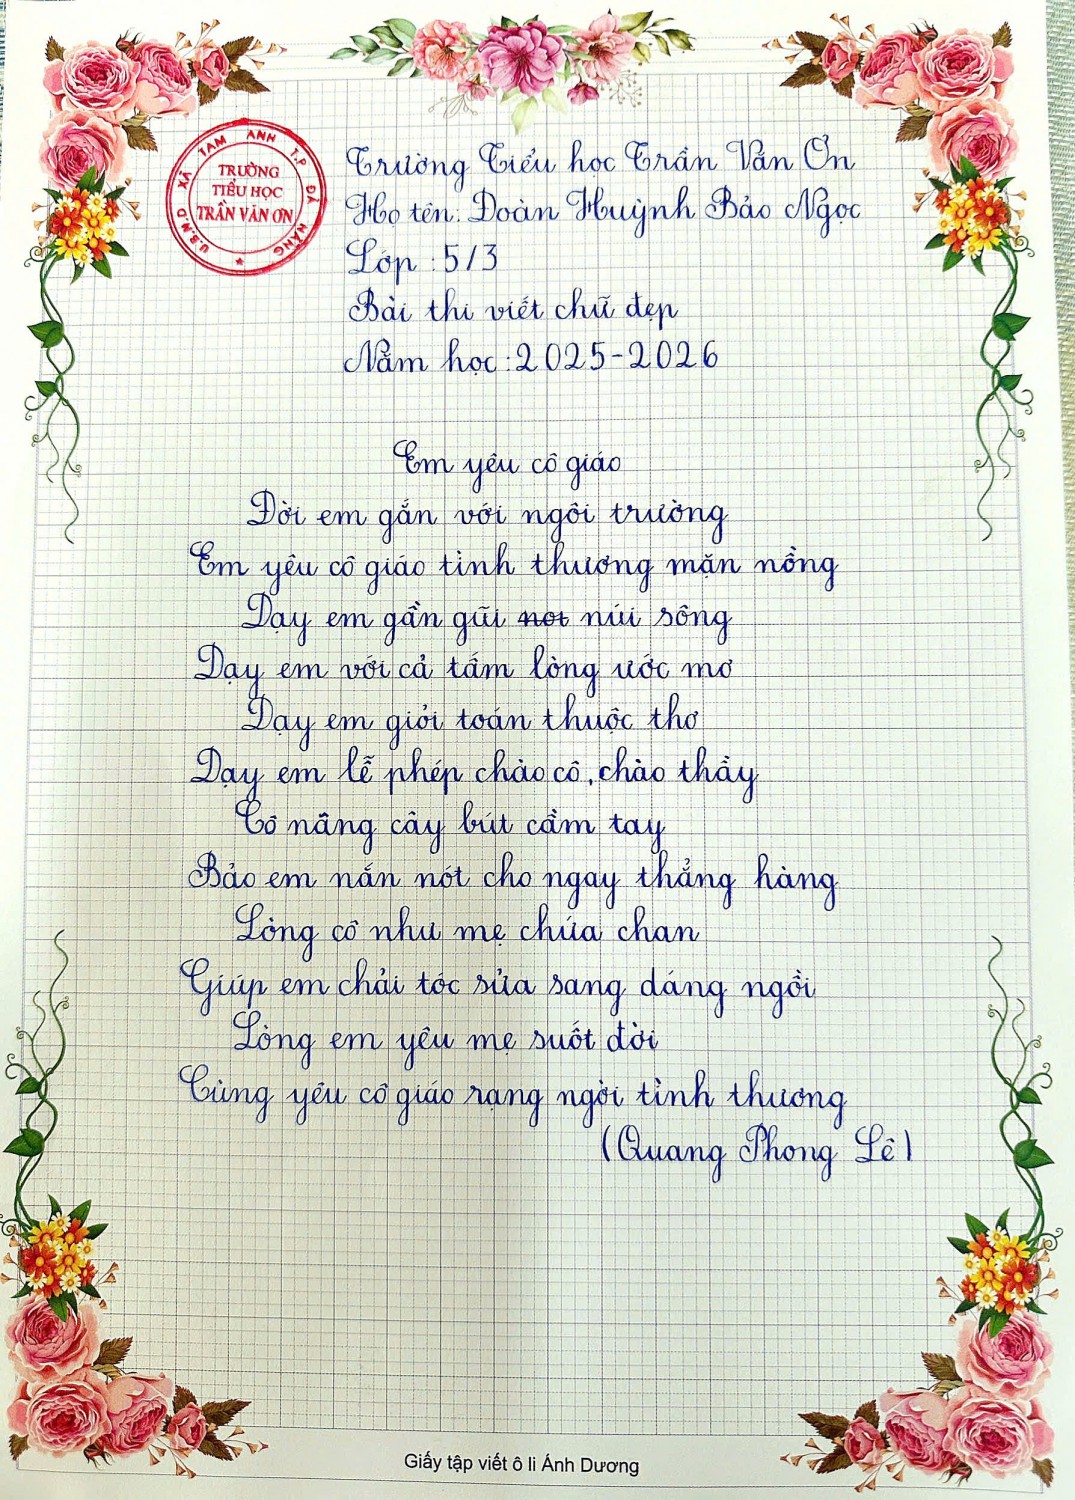 U.B.N.D XÃ TAM ANH T.P ĐÀ NẴNG
TRƯỜNG
TIỂU HỌC
TRẦN VĂN ƠN
Trường Tiểu học Trần Văn Ơn
Họ tên: Đoàn Huỳnh Bảo Ngọc
Lớp : 5/3
Bài thi viết chữ đẹp
Năm học : 2025-2026
Em yêu cô giáo
Đời em gắn với ngôi trường
Em yêu cô giáo tình thương mặn nồng
Dạy em gần gũi núi sông
Dạy em với cả tấm lòng ước mơ
Dạy em giỏi toán thuộc thơ
Dạy em lễ phép chào cô, chào thầy
Cô nâng cây bút cầm tay
Bảo em nắn nót cho ngay thẳng hàng
Lòng cô như mẹ chứa chan
Giúp em chải tóc sửa sang dáng ngồi
Lòng em yêu mẹ suốt đời
Cùng yêu cô giáo rạng ngời tình thương
(Quang Phong Lê)
Giấy tập viết ô li Ánh Dương